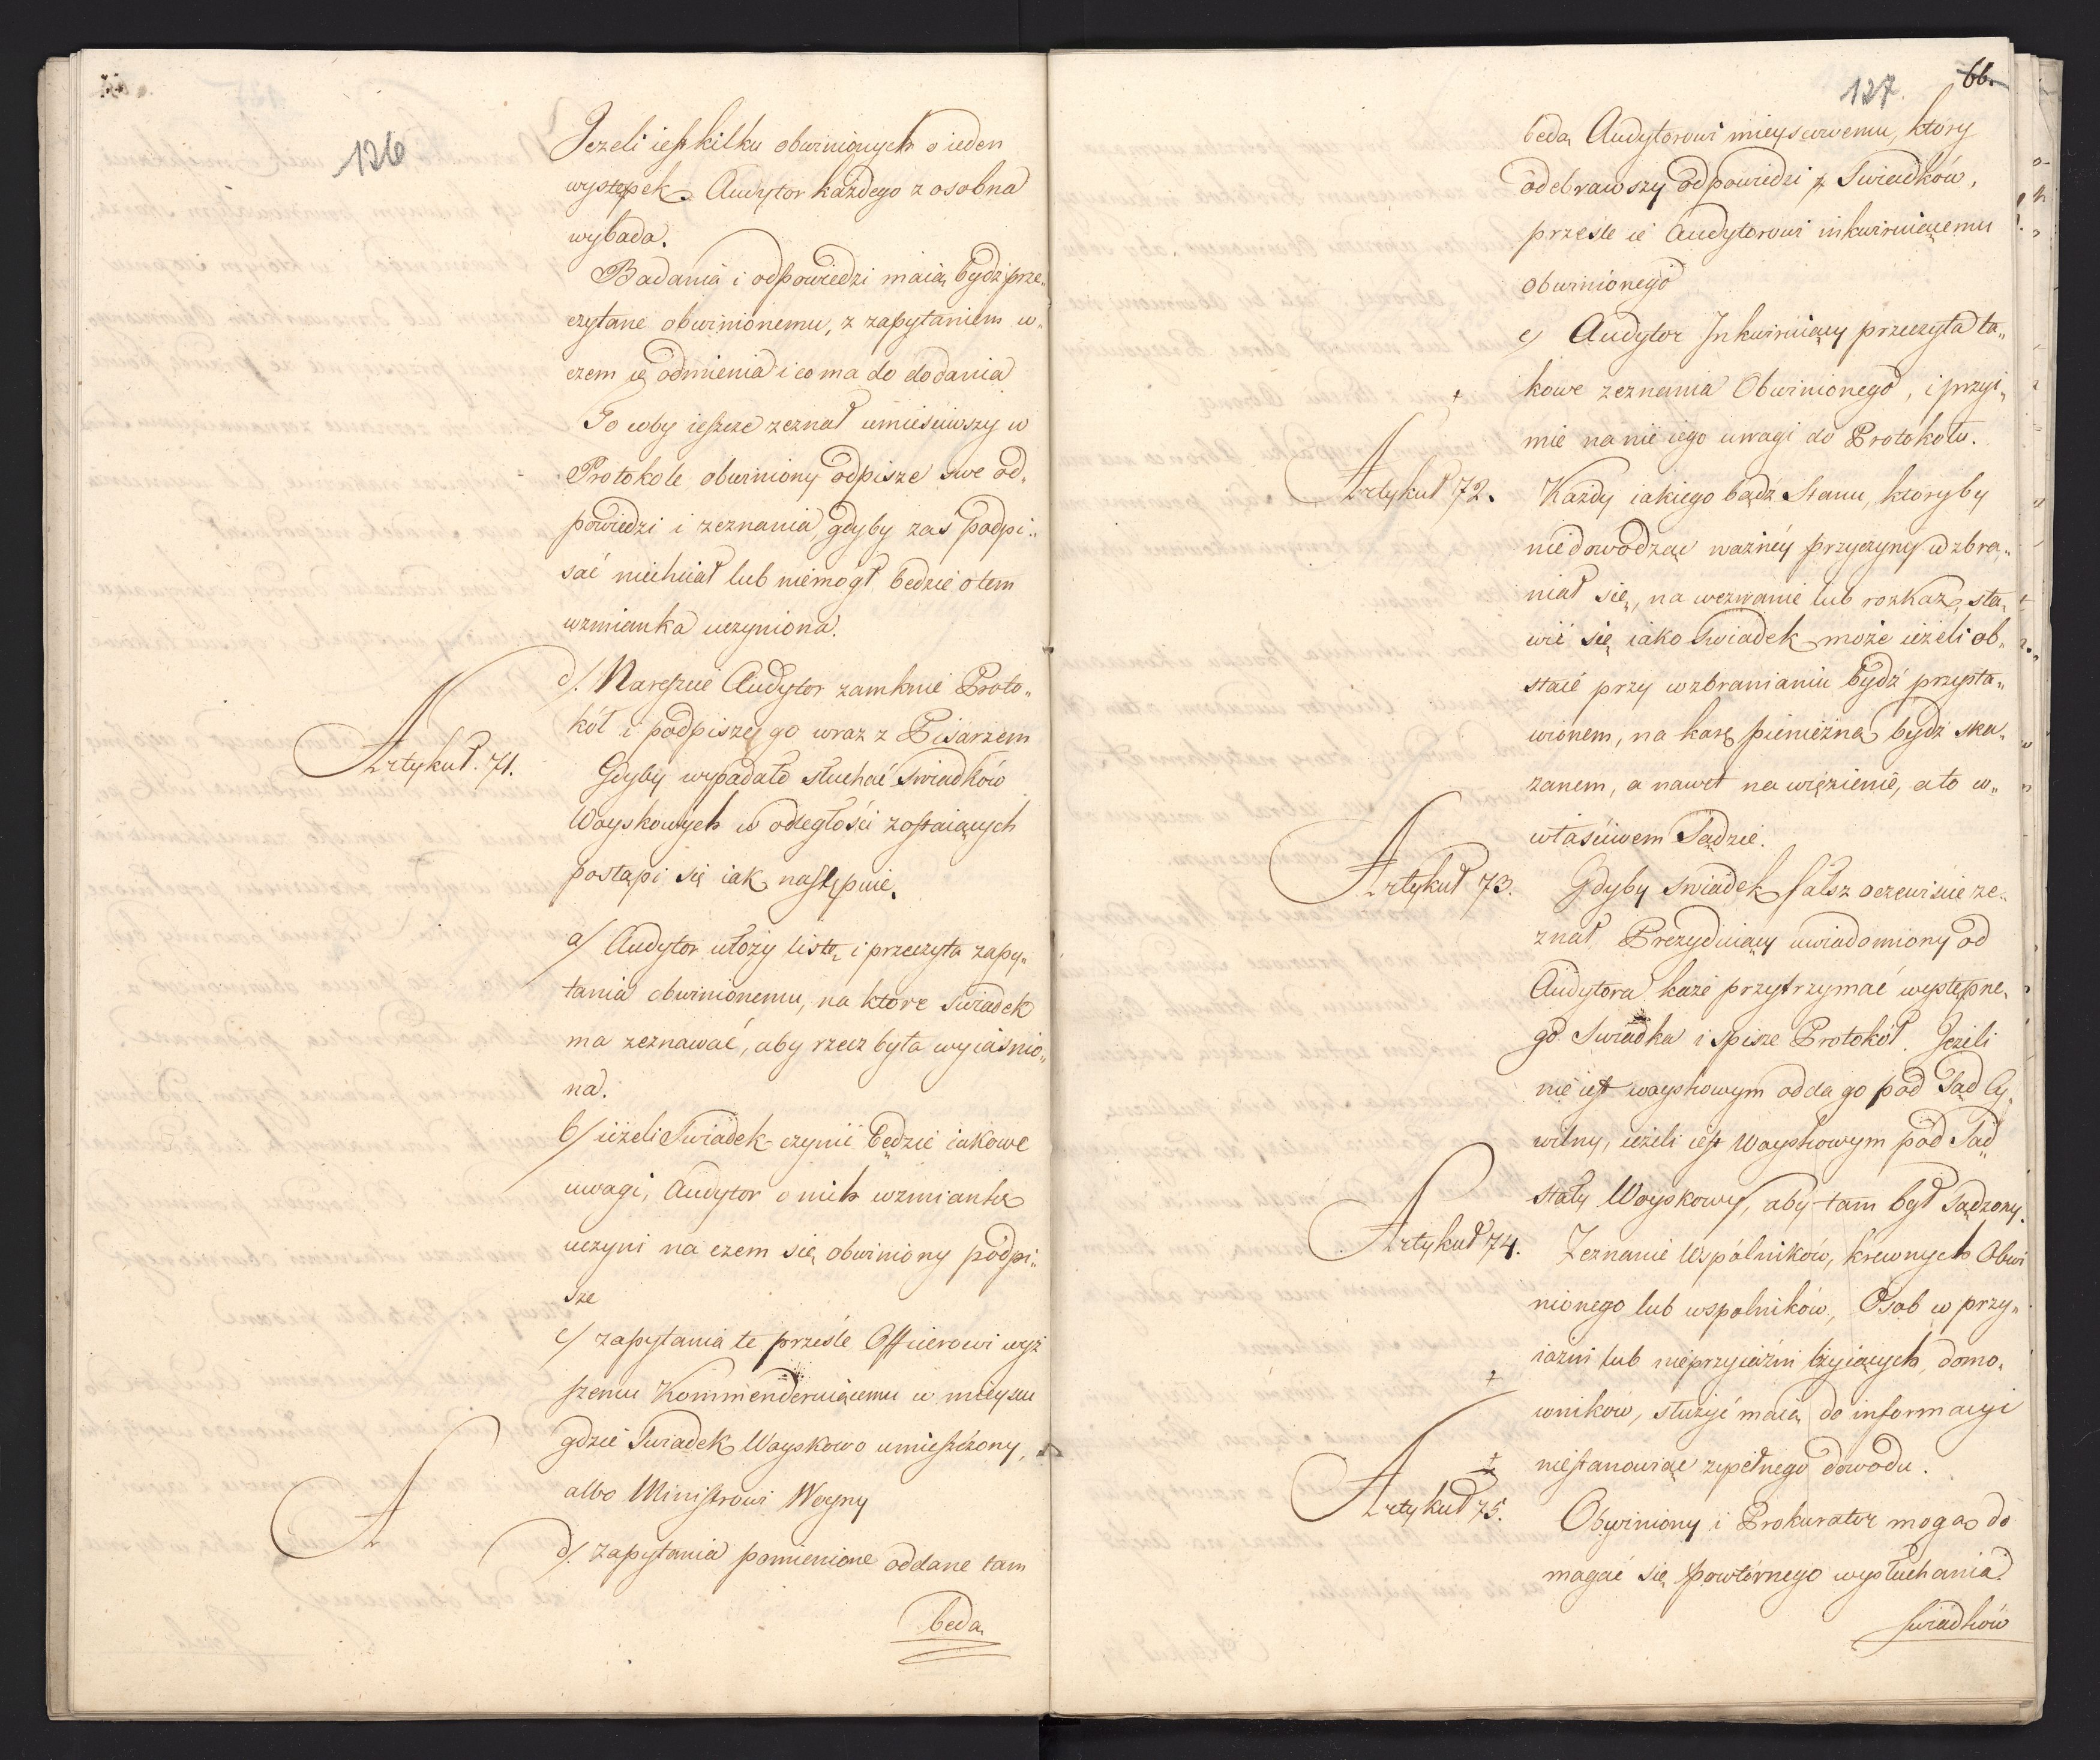 126
Jezeli iest kilku obwinionych o ieden
występek Audytor każdego z osobna
wybada.
Badania i odpowiedzi maią bydź prze„
czytane obwinionemu, z zapytaniem w„
czem ię odmienia i co ma do dodania
To coby ieszcze zeznał umieściwszy w
Protokole obwiniony odpisze swe od„
powiedzi i zeznania, gdyby zaś podpi„
sać niechciał lub niemogł będzie o tem
wzmianka uczyniona.
d/. Nareszcie Audytor zamknie Proto„
kół i podpisze go wraz z Pisarzem
Artykuł. 71.
Gdyby wypadało słuchać swiadków
Woyskowych w odległości zostaiących
postąpi się iak następuie.
a/ Audytor ułoży listę i przeczyta zapy„
tania obwinionemu, na ktore swiadek
ma zeznawać, aby rzecz była wyiaśnio„
na.
b/ ieżeli Swiadek czynić będzie iakowe
uwagi, Audytor o nich wzmiankę
uczyni na czem się obwiniony podpi„
sze
c/ zapytania te prześle Officerowi wyż
szemu Kommenderuiącemu w mieyscu
gdzie Swiadek Woyskowo umieszczony,
albo Ministrowi Woyny
A
d/. zapytania pomienione oddane tam
będą
127. 66.
będą Audytorowi mieyscowemu, ktory
odebrawszy odpowiedzi z Swiadków,
prześle ie Audytorowi inkwiruiącemu
obwinionego
e/ Audytor Inkwiruiący przeczyta ta„
kowe zeznania Obwinionego, i przyi„
mie na nie iego uwagi do Protokołu.
Artykuł 72.
Każdy iakiego bądź Stanu, ktoryby
niedowodząc ważnéy przyczyny wzbra„
niał się, na wezwanie lub rozkaz, sta„
wić się iako swiadek może ieżeli ob„
staie przy wzbranianiu bydź przysta„
wionem, na karę pieniężną bydź ska„
zanem, a nawet na więzienie, a to w„
właściwem Sądzie.
Artykuł 73.
Gdyby swiadek fałsz oczewiście ze„
znał, Prezyduiący uwiadomiony od
Audytora każe przytrzymać występne„
go Swiadka i spisze Protokół. Jeżeli
nie iest woyskowym odda go pod Sąd Cy„
wilny, ieżeli iest Woyskowym pod Sąd
stały Woyskowy, aby tam był Sądzony.
Artykuł 74.
Zeznanie Wspólników, krewnych Obwi
nionego lub wspolników, Osob w przy„
iazni lub nieprzyiaźni żyiących, domo„
wników, służyć maią do informacyi
niestanowiąc zupełnego dowodu.
Artykuł 75.
Obwiniony i Prokurator mogą do
magać się powtórnego wysłuchania
swiadków